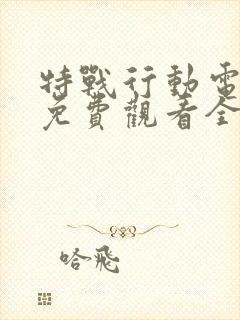 特戰行動電
免費觀看全
哈飛